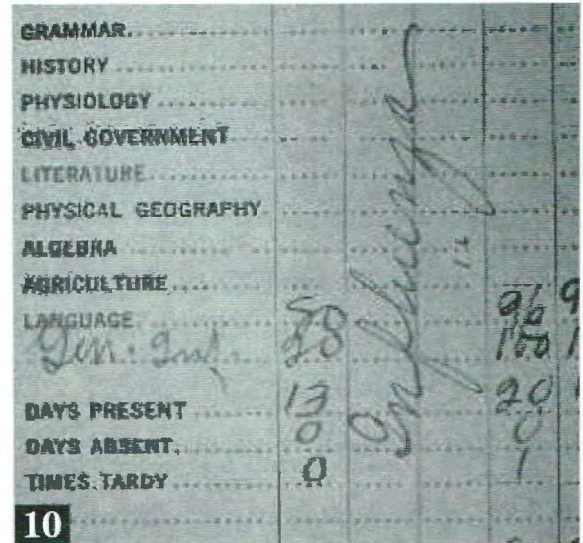 GRAMMAR
HISTORY
PHYSIOLOGY
CIVIL GOVERNMENT
LITERATURE
PHYSICAL GEOGRAPHY
ALGEBRA
AGRICULTURE 96
LANGUAGE 80 100
Gen.
DAYS PRESENT 13 20
DAYS ABSENT 0 0
TIMES TARDY 0 1
Influenza
10